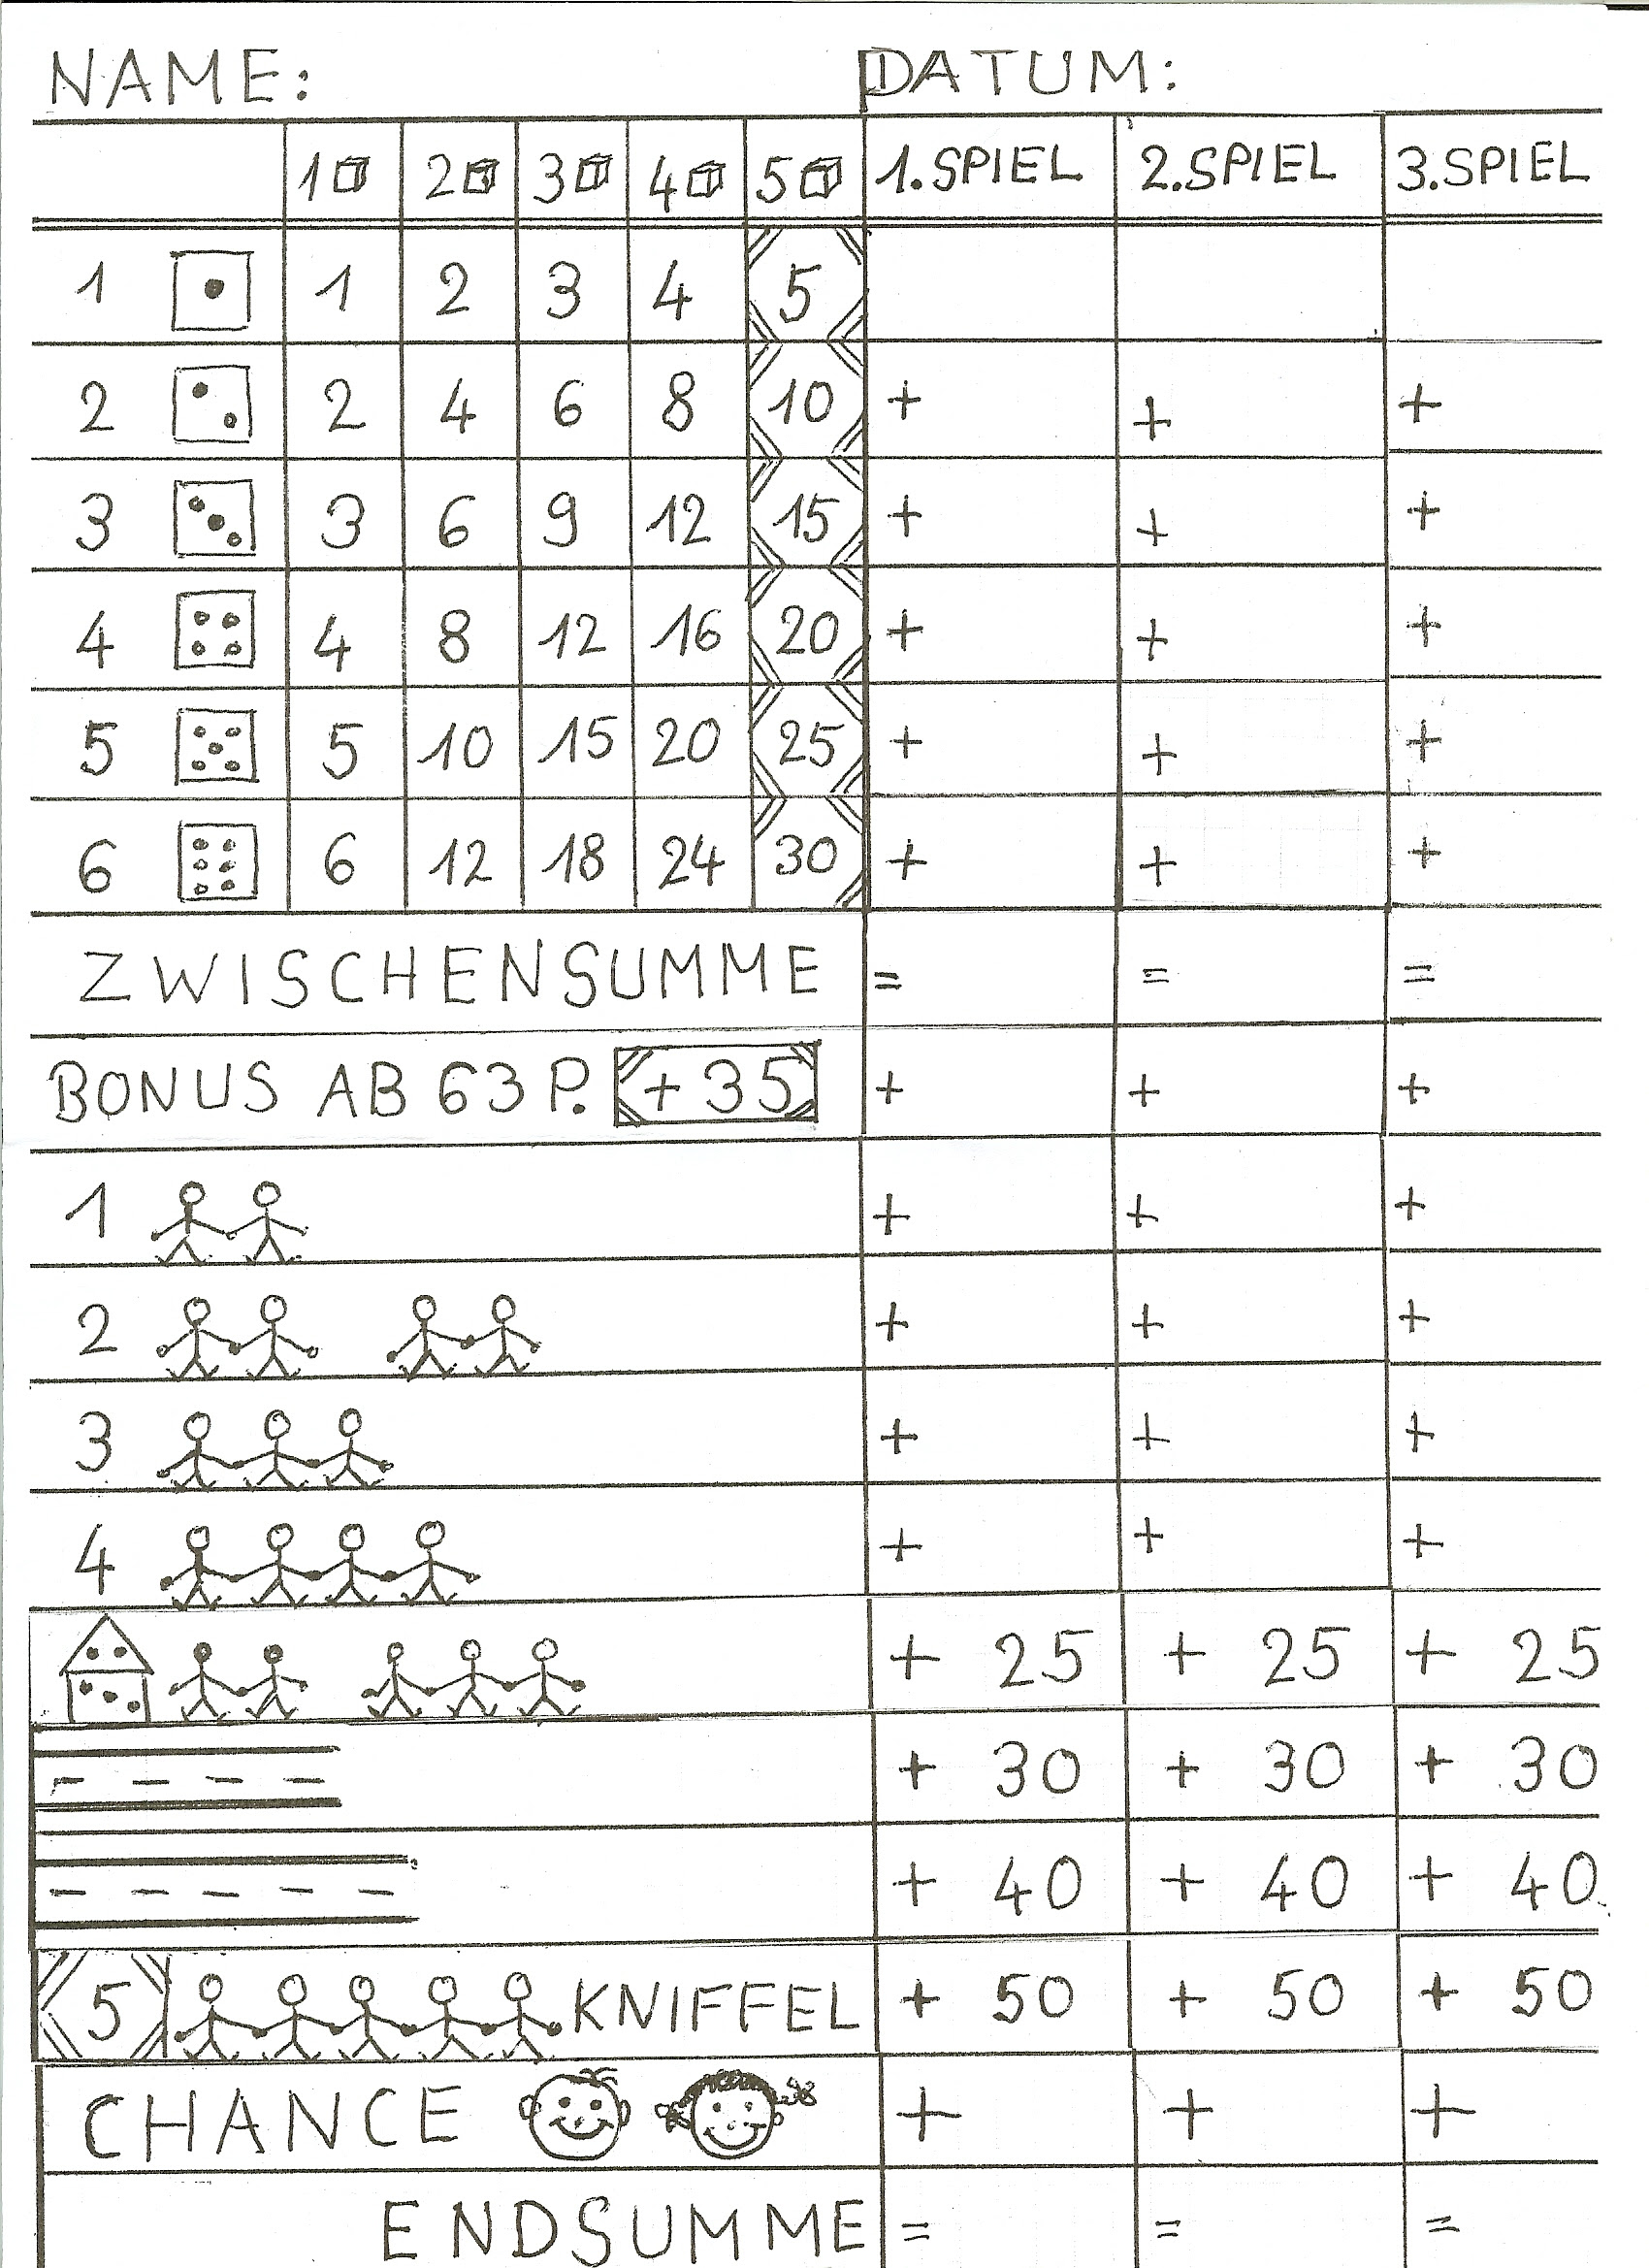 NAME: DATUM:
1 2 3 4 5 1.SPIEL 2.SPIEL 3.SPIEL
1 1 2 3 4 5
2 2 4 6 8 10 + + +
3 3 6 9 12 15 + + +
4 4 8 12 16 20 + + +
5 5 10 15 20 25 + + +
6 6 12 18 24 30 + + +
ZWISCHENSUMME = = =
BONUS AB 63 P. +35 + + +
1 + + +
2 + + +
3 + + +
4 + + +
+ 25 + 25 + 25
+ 30 + 30 + 30
+ 40 + 40 + 40
5 KNIFFEL + 50 + 50 + 50
CHANCE + + +
ENDSUMME = = =